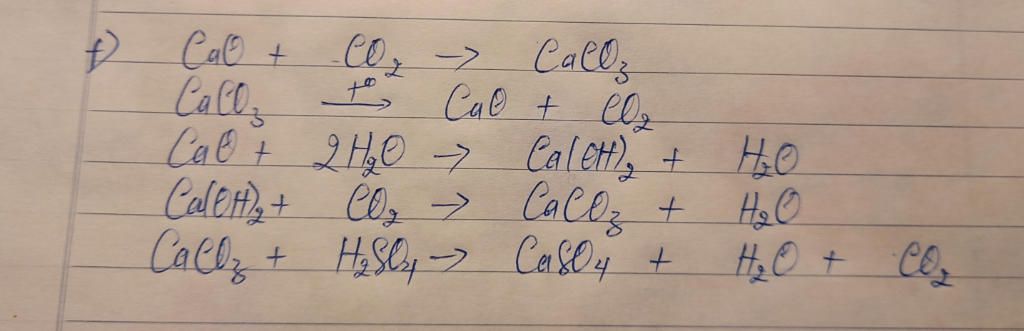 f) CaO + CO₂ → CaCO₃
CaCO₃ —t°→ CaO + CO₂
CaO + 2H₂O → Ca(OH)₂ + H₂O
Ca(OH)₂ + CO₂ → CaCO₃ + H₂O
CaCO₃ + H₂SO₄ → CaSO₄ + H₂O + CO₂